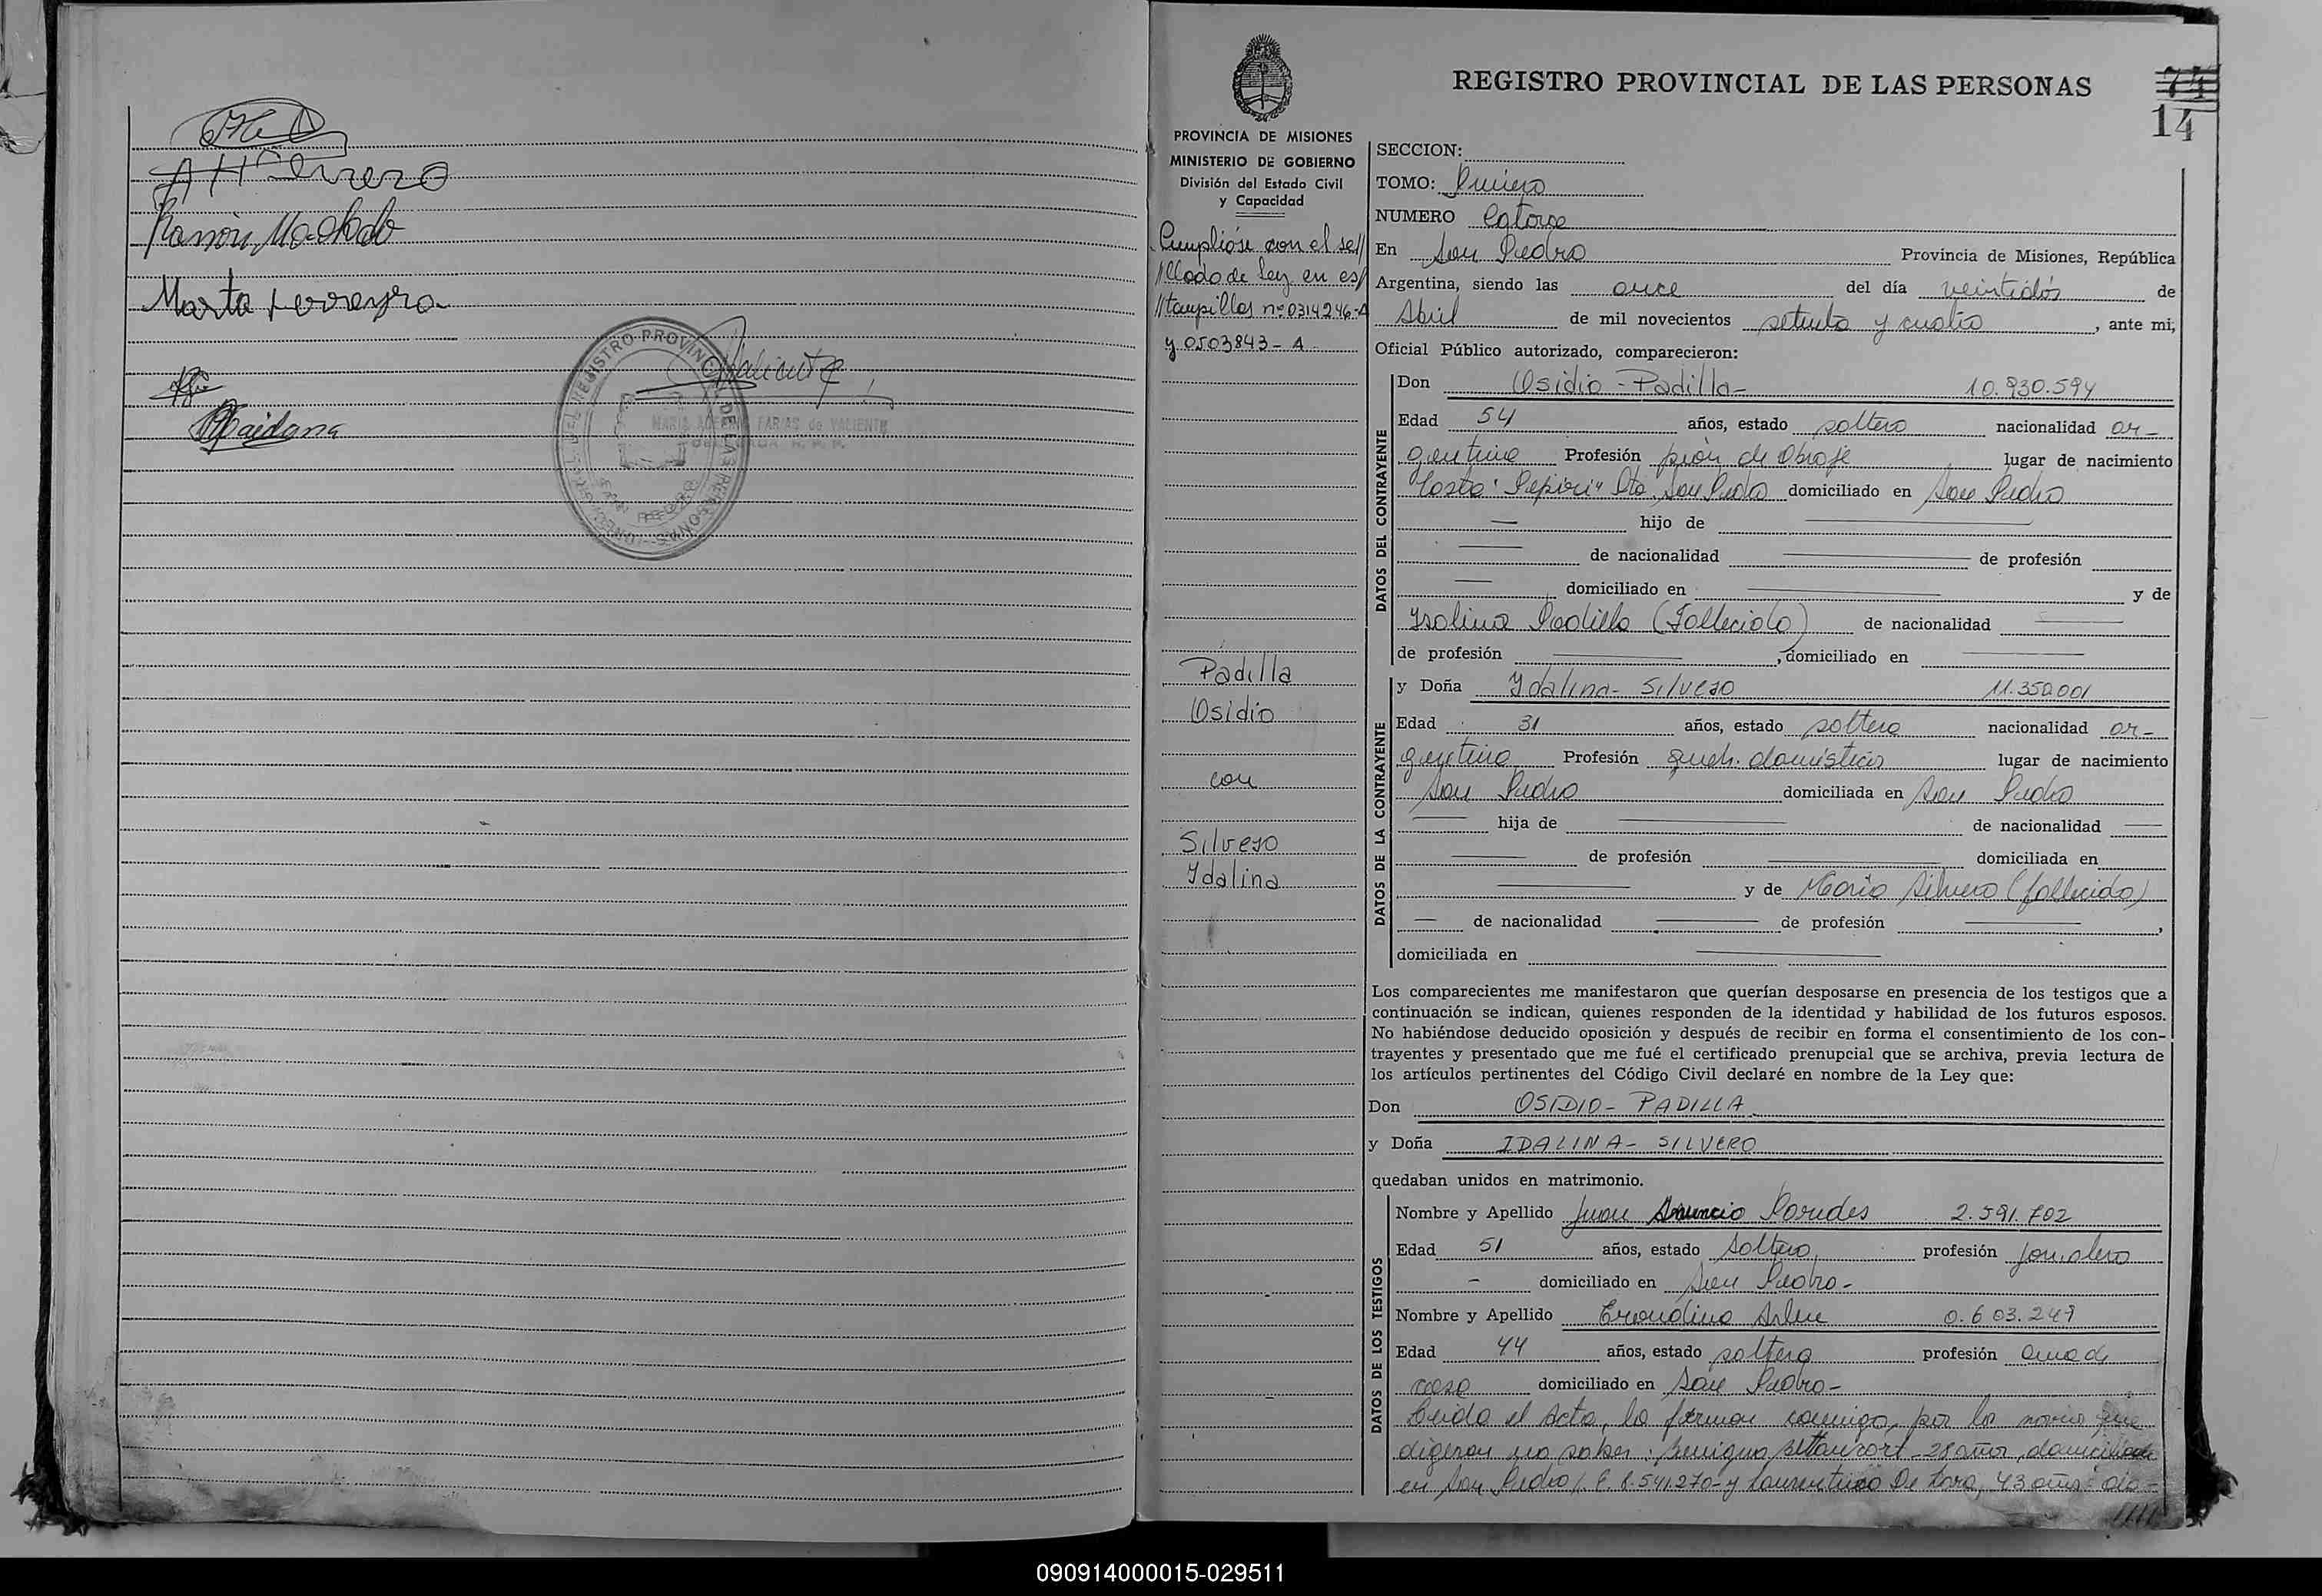 Ramón Machado
Marta Ferreyra
Valiente
Maidana
REGISTRO PROVINCIAL DE LAS PERSONAS
MARIA FARIAS de VALIENTE
REGISTRO PROVINCIAL DE LAS PERSONAS
74
14
PROVINCIA DE MISIONES
MINISTERIO DE GOBIERNO
División del Estado Civil
y Capacidad
Cumplióse con el se//
//llado de ley en es/
//tampillas nº 0314246-A
y 0503843-A
Padilla
Osidio
con
Silvero
Ydalina
SECCION:
TOMO: Primero
NUMERO Catorce
En San Pedro Provincia de Misiones, República
Argentina, siendo las once del día veintidós de
Abril de mil novecientos setenta y cuatro, ante mi,
Oficial Público autorizado, comparecieron:
DATOS DEL CONTRAYENTE
Don Osidio - Padilla - 10.930.594
Edad 54 años, estado soltero nacionalidad ar-
gentina Profesión peón de obraje lugar de nacimiento
Costa "Pepirí" Dto. San Pedro domiciliado en San Pedro
— hijo de —
— de nacionalidad — de profesión
— domiciliado en — y de
Ysolina Padilla (Fallecida) de nacionalidad —
de profesión —, domiciliado en —
DATOS DE LA CONTRAYENTE
y Doña Ydalina - Silvero 11.350.001
Edad 31 años, estado soltera nacionalidad ar-
gentina Profesión queh. domésticos lugar de nacimiento
San Pedro domiciliada en San Pedro
— hija de — de nacionalidad —
— de profesión — domiciliada en
— y de María Silvero (fallecida)
— de nacionalidad — de profesión —,
domiciliada en —
Los comparecientes me manifestaron que querían desposarse en presencia de los testigos que a
continuación se indican, quienes responden de la identidad y habilidad de los futuros esposos.
No habiéndose deducido oposición y después de recibir en forma el consentimiento de los con-
trayentes y presentado que me fué el certificado prenupcial que se archiva, previa lectura de
los artículos pertinentes del Código Civil declaré en nombre de la Ley que:
Don OSIDIO - PADILLA
y Doña IDALINA - SILVERO
quedaban unidos en matrimonio.
DATOS DE LOS TESTIGOS
Nombre y Apellido Juan Asuncio Paredes 2.591.702
Edad 51 años, estado soltero profesión jornalero
- domiciliado en San Pedro -
Nombre y Apellido Erondina 0.603.249
Edad 44 años, estado soltera profesión ama de
casa domiciliado en San Pedro -
Leída el Acta, la firman conmigo, por los novios que
digeron no saber: Benigno Betancort - 28 años, domiciliado
en San Pedro L.E. 8.541.270 - y Laurentino De Lara, 43 años, do-
////
090914000015-029511